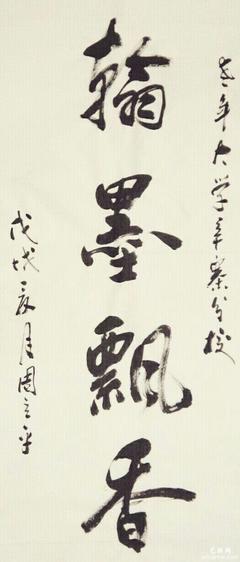 老年大学辛寨分校
翰墨飘香
戊戌夏月周立平